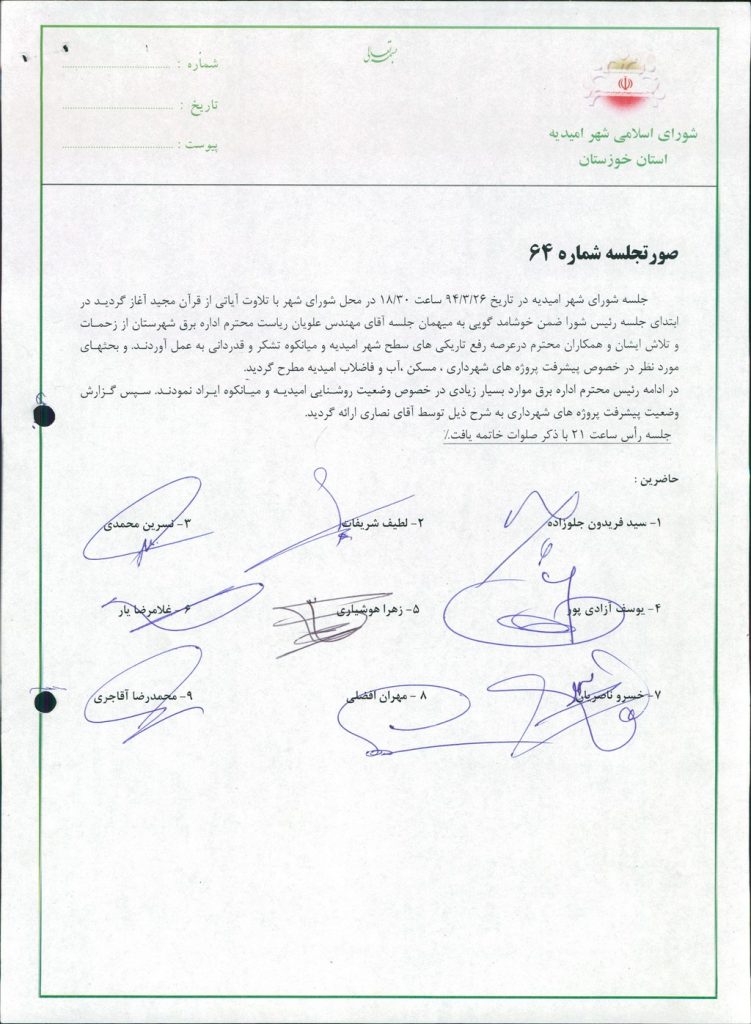 بسمه تعالی
شماره :
تاریخ :
پیوست :
شورای اسلامی شهر امیدیه
استان خوزستان
صورتجلسه شماره ۶۴
جلسه شورای شهر امیدیه در تاریخ ۹۴/۳/۲۶ ساعت ۱۸/۳۰ در محل شورای شهر با تلاوت آیاتی از قرآن مجید آغاز گردید در
ابتدای جلسه رئیس شورا ضمن خوشامد گویی به میهمان جلسه آقای مهندس علویان ریاست محترم اداره برق شهرستان از زحمات
و تلاش ایشان و همکاران محترم درعرصه رفع تاریکی های سطح شهر امیدیه و میانکوه تشکر و قدردانی به عمل آوردند. و بحثهای
مورد نظر در خصوص پیشرفت پروژه های شهرداری ، مسکن ،آب و فاضلاب امیدیه مطرح گردید.
در ادامه رئیس محترم اداره برق موارد بسیار زیادی در خصوص وضعیت روشنایی امیدیه و میانکوه ایراد نمودند. سپس گزارش
وضعیت پیشرفت پروژه های شهرداری به شرح ذیل توسط آقای نصاری ارائه گردید.
جلسه رأس ساعت ۲۱ با ذکر صلوات خاتمه یافت.٪
حاضرین :
۱- سید فریدون جلوزاده
۲- لطیف شریفات
۳- نسرین محمدی
۴- یوسف آزادی پور
۵- زهرا هوشیاری
۶- غلامرضا یار
۷- خسرو ناصریان
۸ - مهران افضلی
۹- محمدرضا آقاجری